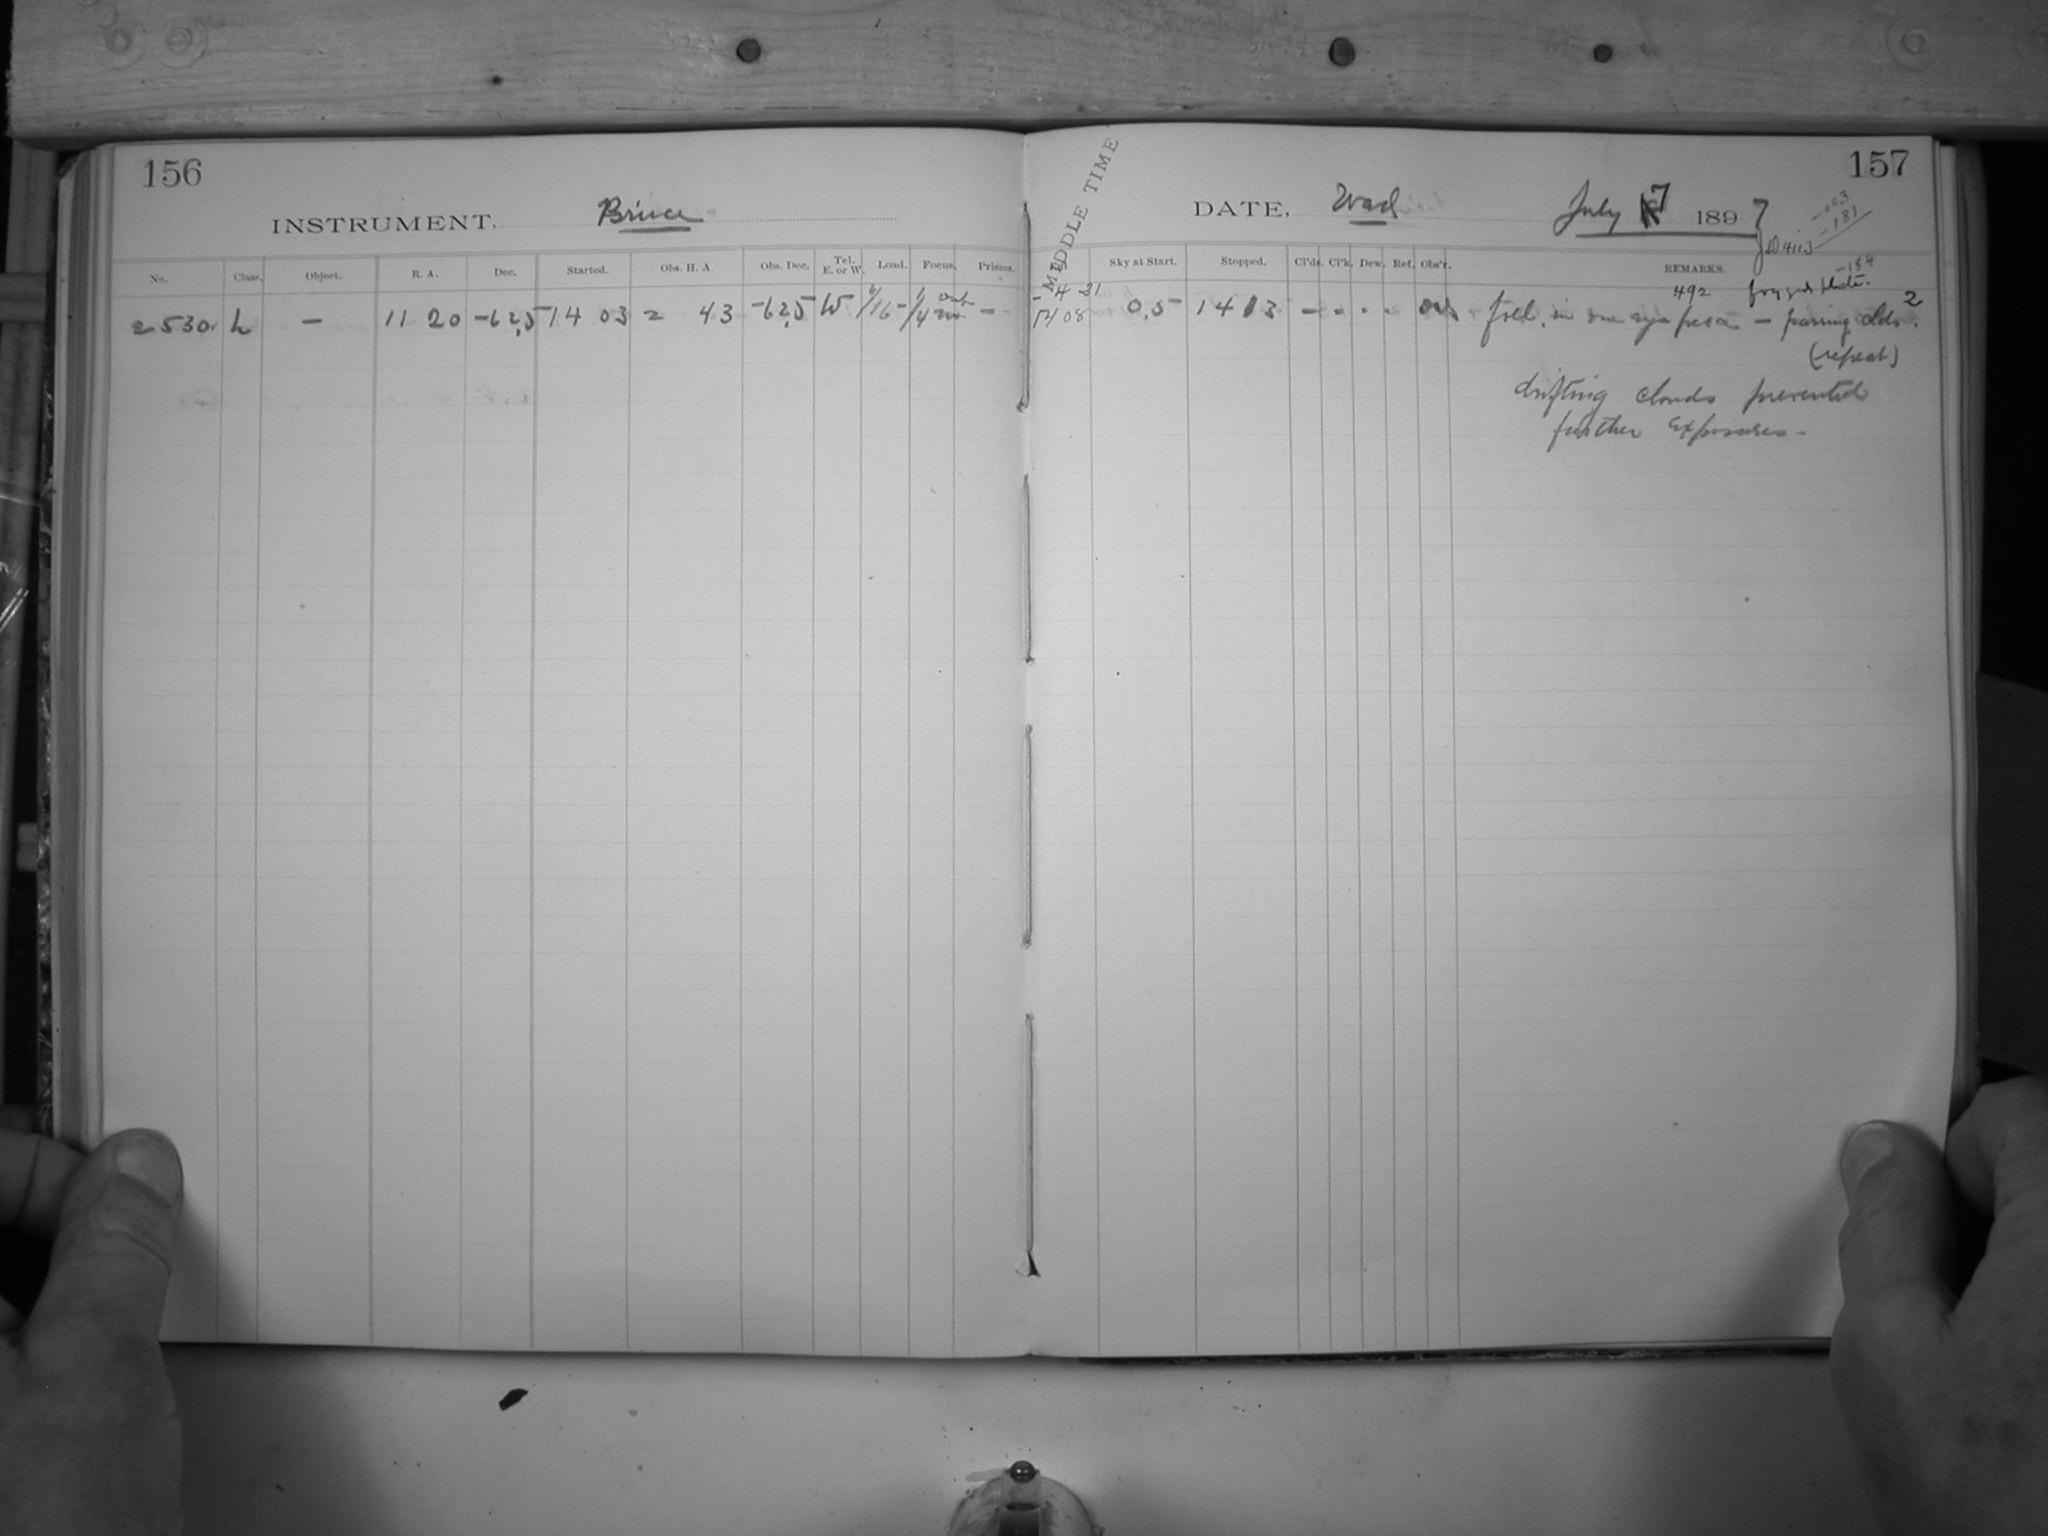 156
INSTRUMENT, Bruce
No. Class. Object. R. A. Dec. Started. Obs. H. A. Obs. Dec. Tel. E. or W. Load. Focus. Prisms.
2530 L — 11 20 -62,5 14 03 2 43 -62,5 W 1/16 -1/4 —
MIDDLE TIME
157
DATE, Wed July 7 1897
-181
JD 4113
Sky at Start. Stopped. Cl'ds. Cl'k. Dew. Ref. Obs'r. REMARKS.
-184
-4 21 492 fogged plate. 2
14 08 0,5 1413 - - - - foll. in — passing clds.
(repeat)
drifting clouds prevented
further Exposures -